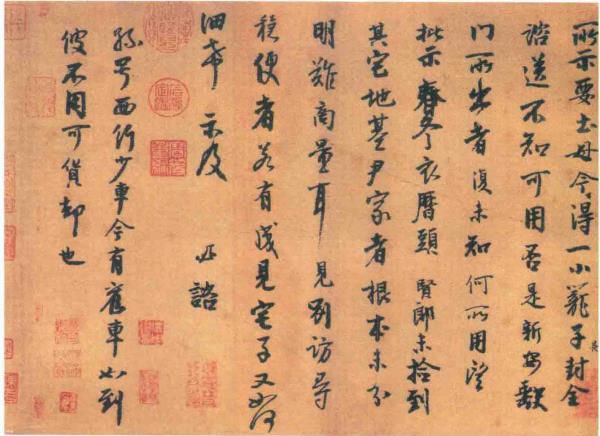 所示要土母今得一小籠子封全
諮送不知可用否是新安缺
門所出者復未知何所用望
批示春冬衣曆頭賢郎未拾到
其宅地基尹家者根本未分
明難商量耳見別訪尋
穩便者若有成見宅子又如何
細希示及諮
孫号西行少車今有舊車如到
彼不用可貨却也